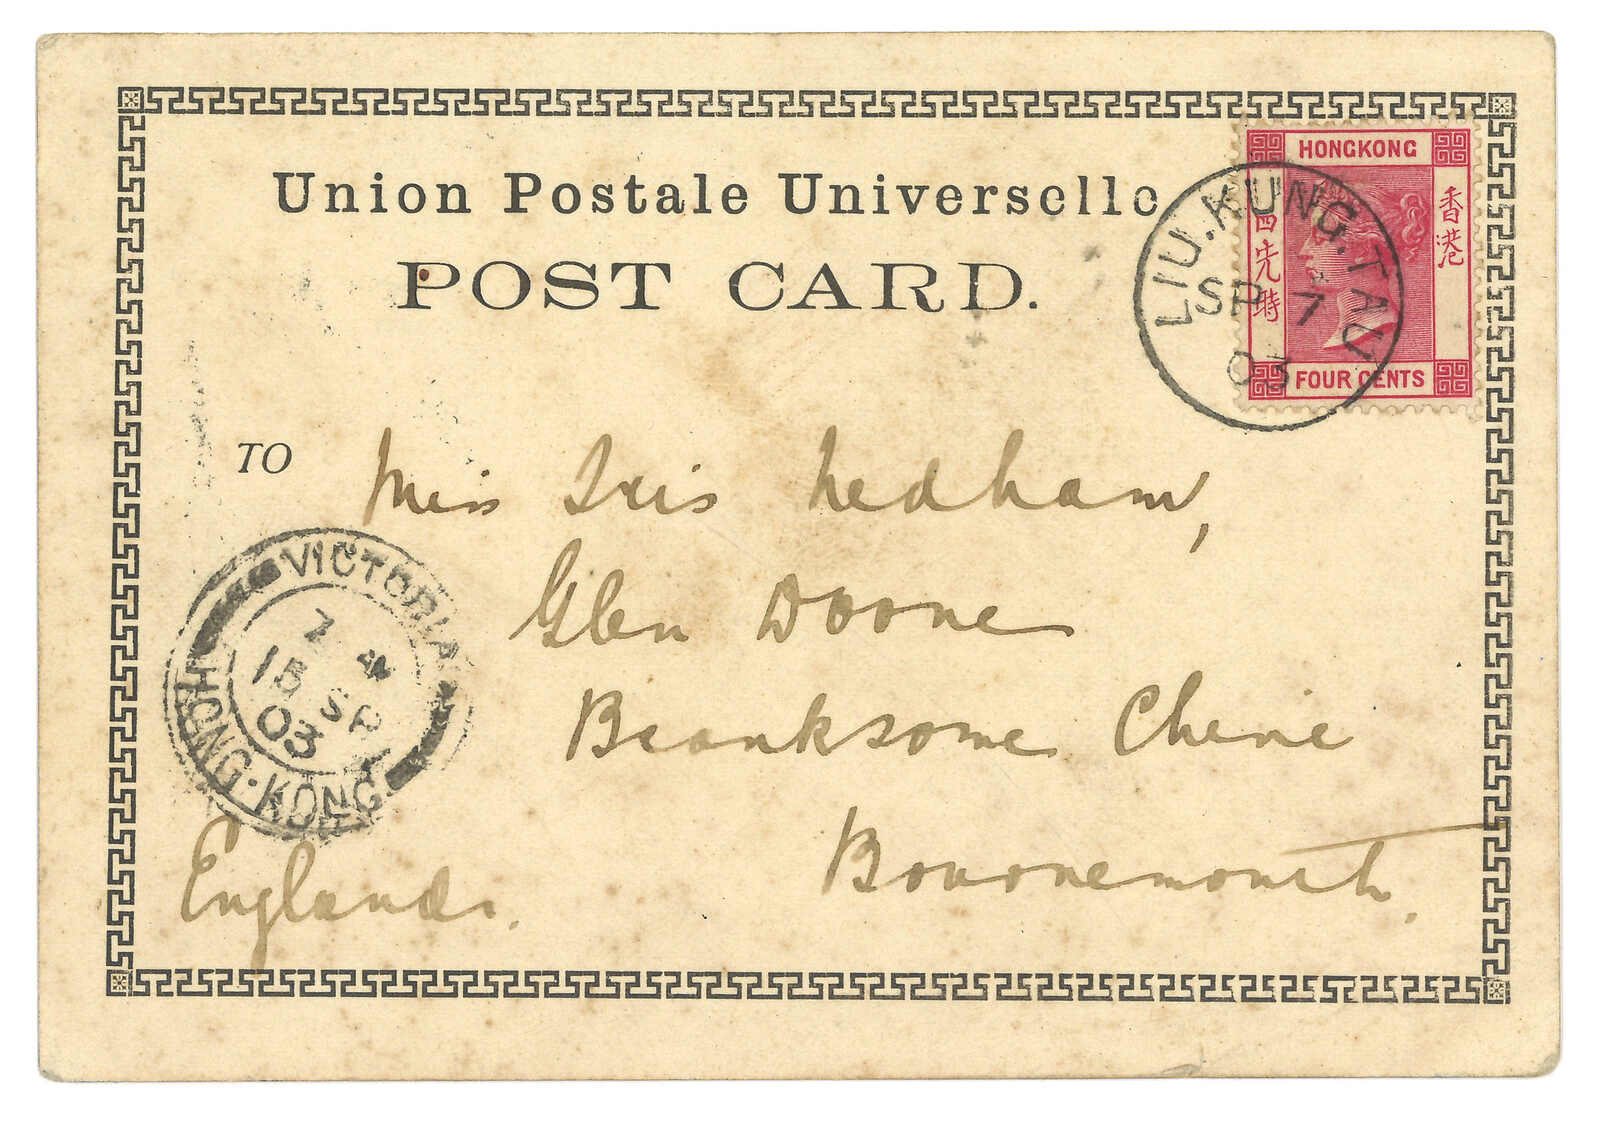 Union Postale Universelle
POST CARD.
HONGKONG
香港
四先時
FOUR CENTS
LIU.KUNG.TAU
SP 7
03
TO
Miss Iris Nedham,
Glen Doone
Branksome Chine
Bournemouth.
England.
VICTORIA
15 SP
03
HONG-KONG